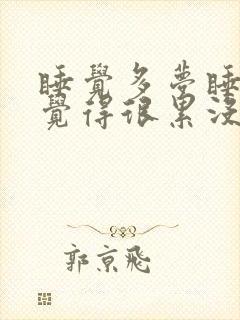 睡覺多夢睡
覺得很累沒
郭京飛